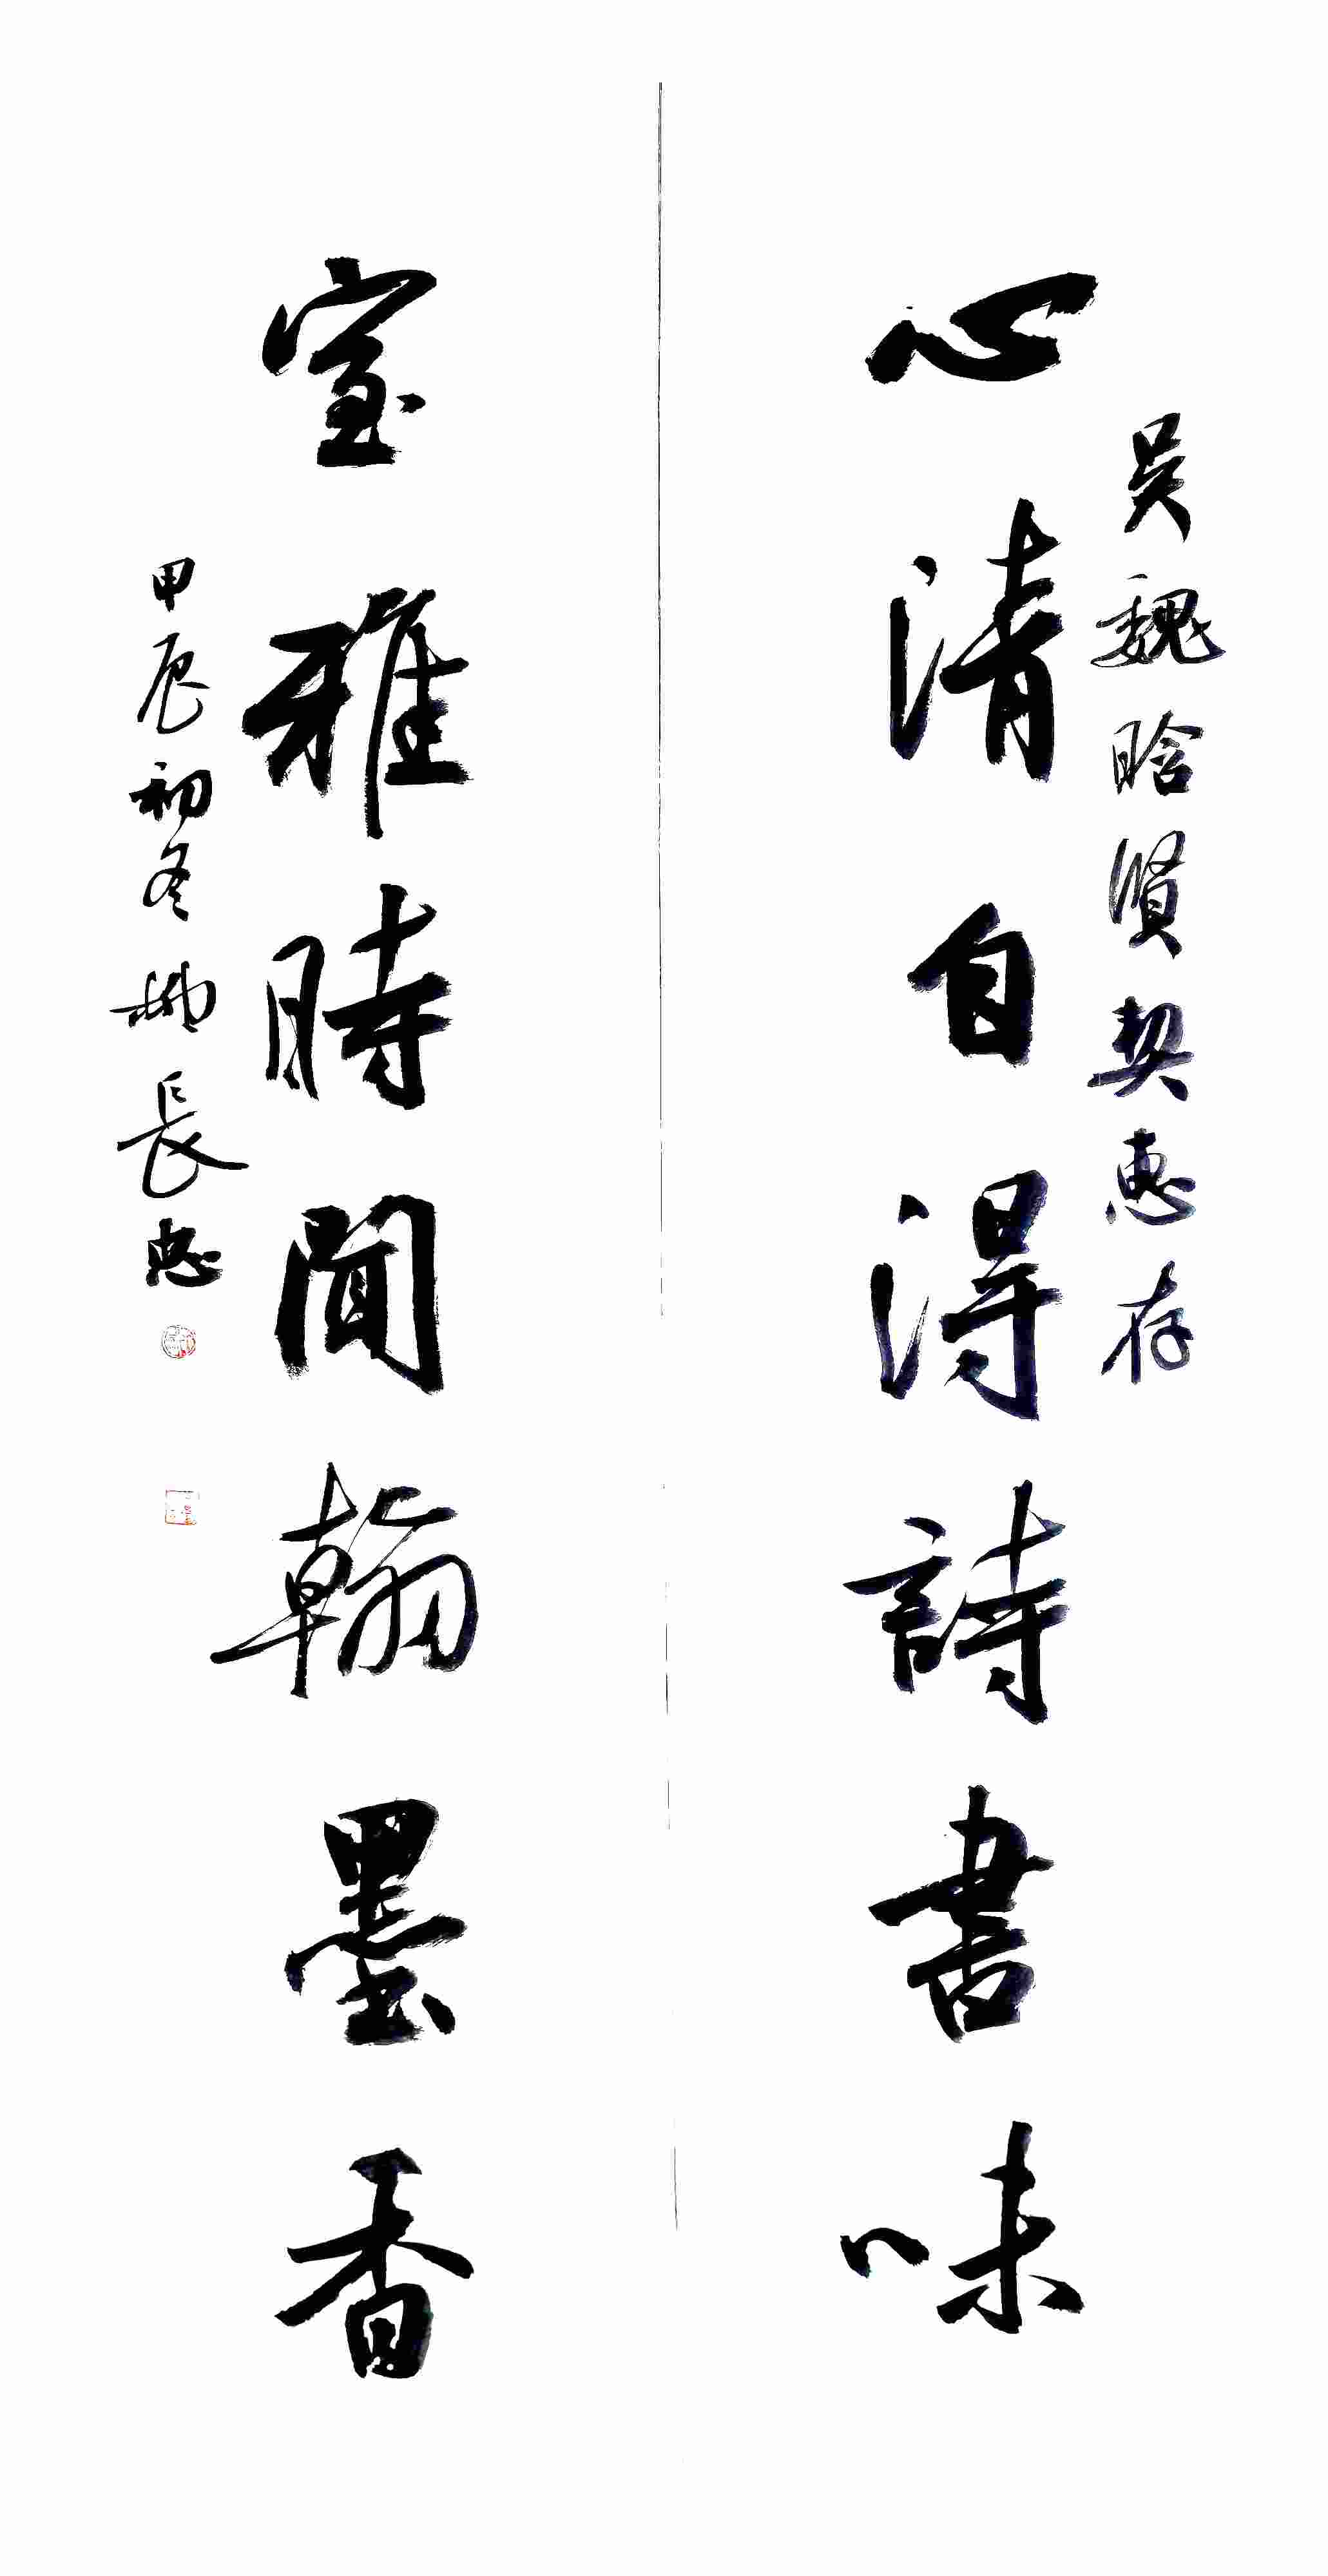 吴魏晗賢契惠存
心清自得詩書味
室雅時聞翰墨香
甲辰初冬 長忠